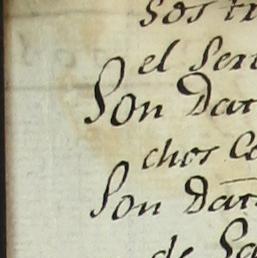 sos tr
el Ser
Son Dat
chos Co
Son Dat
de Sa